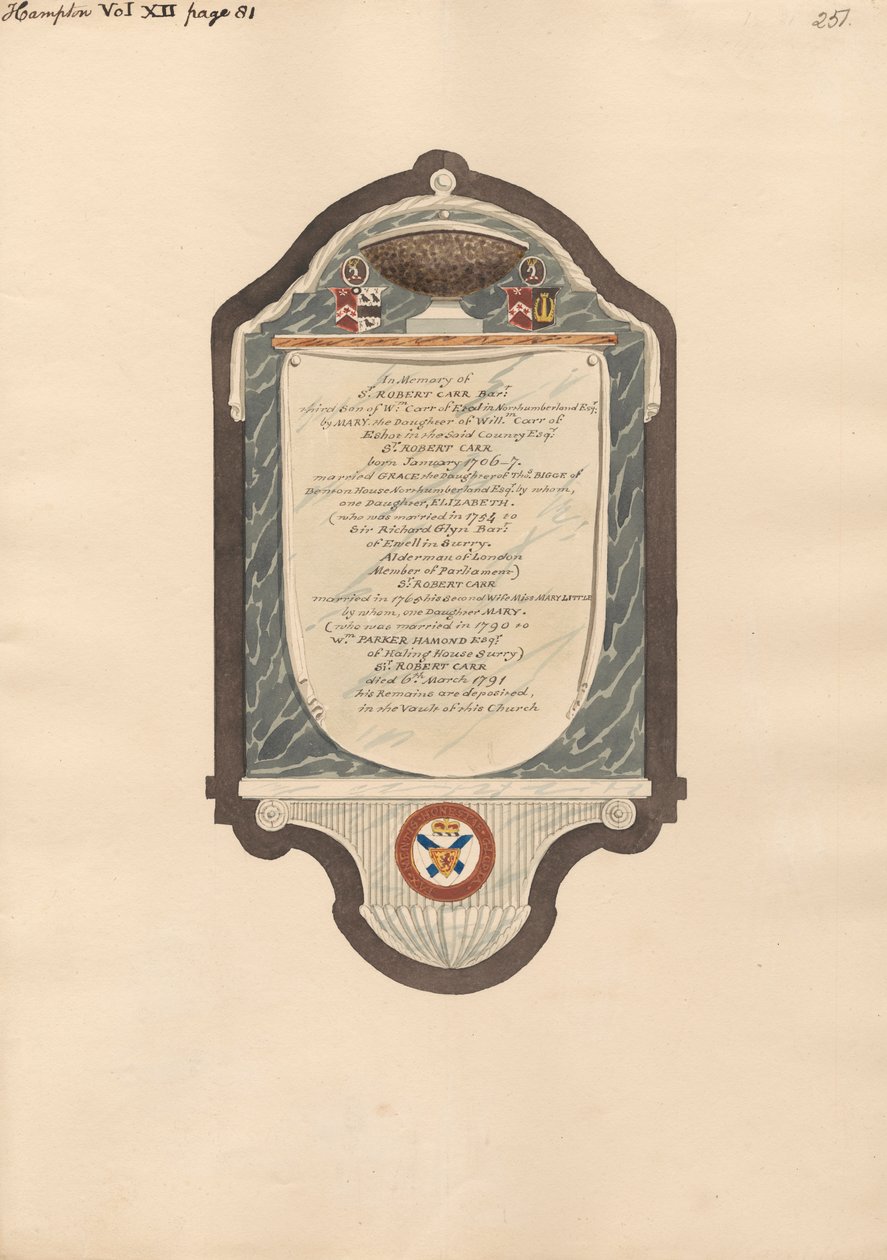 Hampton Vol XII page 81
251.
In Memory of
Sr. ROBERT CARR Bart.
third Son of Wm. Carr of Etal in Northumberland Esqr.
by MARY, the Daughter of Willm. Carr of
Eshot in the Said County Esqr.
Sr. ROBERT CARR
born January 1706-7.
married GRACE the Daughter of Thos. BIGGE of
Benton House Northumberland Esqr. by whom,
one Daughter, ELIZABETH.
(who was married in 1754 to
Sir Richard Glyn Bart.
of Ewell in Surry.
Alderman of London
Member of Parliament)
Sr. ROBERT CARR
married in 1765 his Second Wife Miss MARY LITTLE
by whom, one Daughter MARY.
(who was married in 1790 to
Wm. PARKER HAMOND Esqr.
of Haling House Surry)
Sr. ROBERT CARR
died 6th. March 1791
his Remains are deposited,
in the Vault of this Church
MENTIS HONESTAE GLORIA